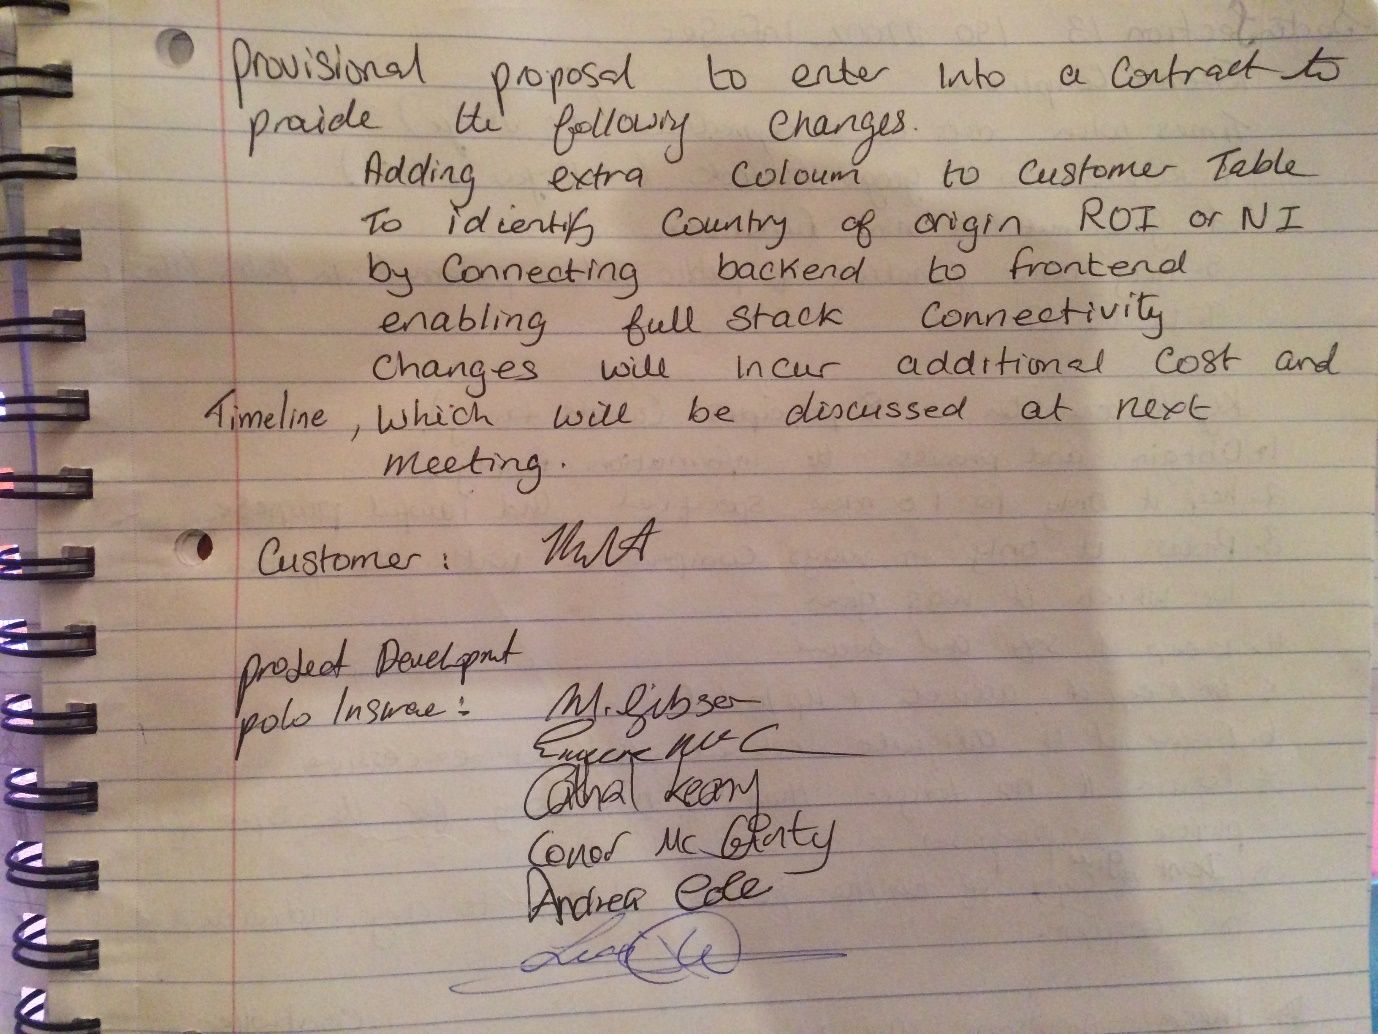 Provisional proposal to enter into a contract to
provide the following changes.
Adding extra Coloum to Customer Table
To idientify Country of origin ROI or NI
by Connecting backend to frontend
enabling full stack connectivity
Changes will incur additional cost and
Timeline, which will be discussed at next
meeting.
Customer:
Project Development
polo Insurae:
M. Gibson
Eugene Mc
Cathal Keany
Conor Mc Ginty
Andrea Cole